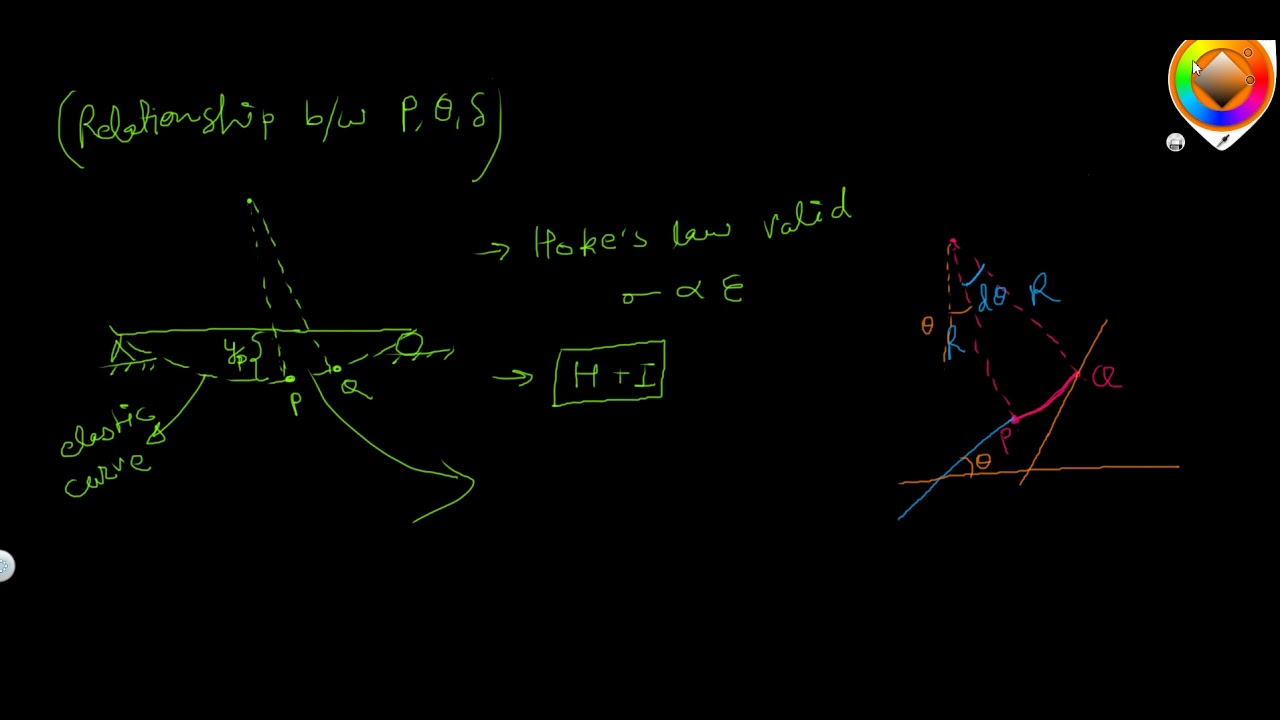 (Relationship b/w P, θ, δ)
→ Hoke's law valid
σ ∝ ε
→ H + I
yp
P
Q
elastic
curve
dθ
R
θ
R
Q
P
θ